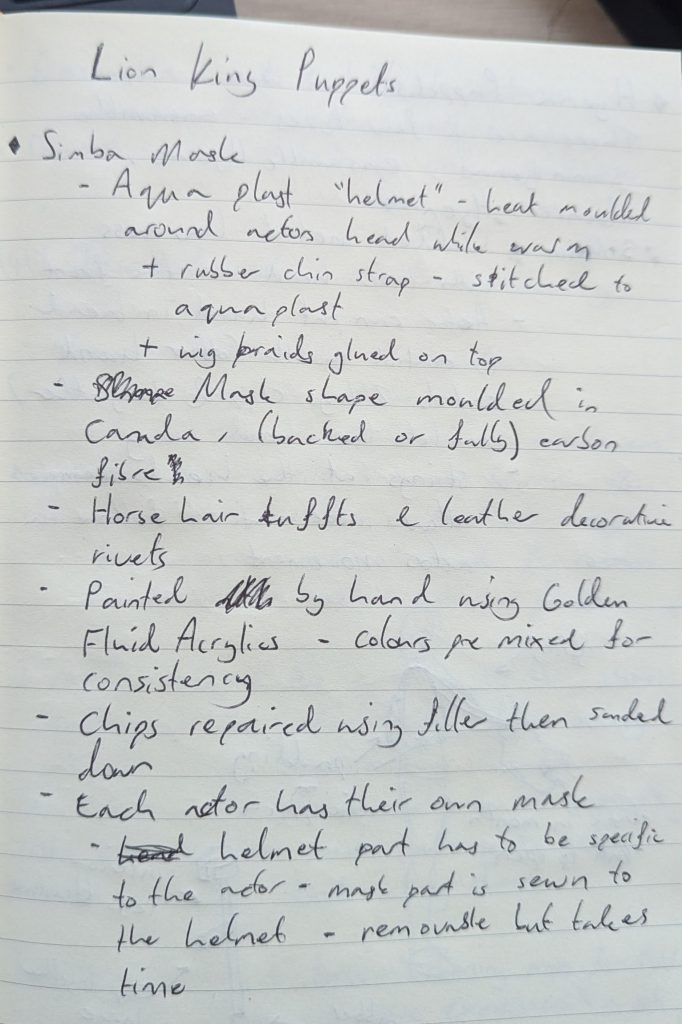 Lion King Puppets
♦ Simba Mask
- Aqua plast "helmet" - heat moulded
around actors head while warm
+ rubber chin strap - stitched to
aqua plast
+ wig braids glued on top
- Mask shape moulded in
Canda, (backed or fully) carbon
fibre
- Horse hair tuffts & leather decorative
rivets
- Painted by hand using Golden
Fluid Acrylics - colours pre mixed for
consistency
- Chips repaired using filler then sanded
down
- Each actor has their own mask
- helmet part has to be specific
to the actor - mask part is sewn to
the helmet - removable but takes
time